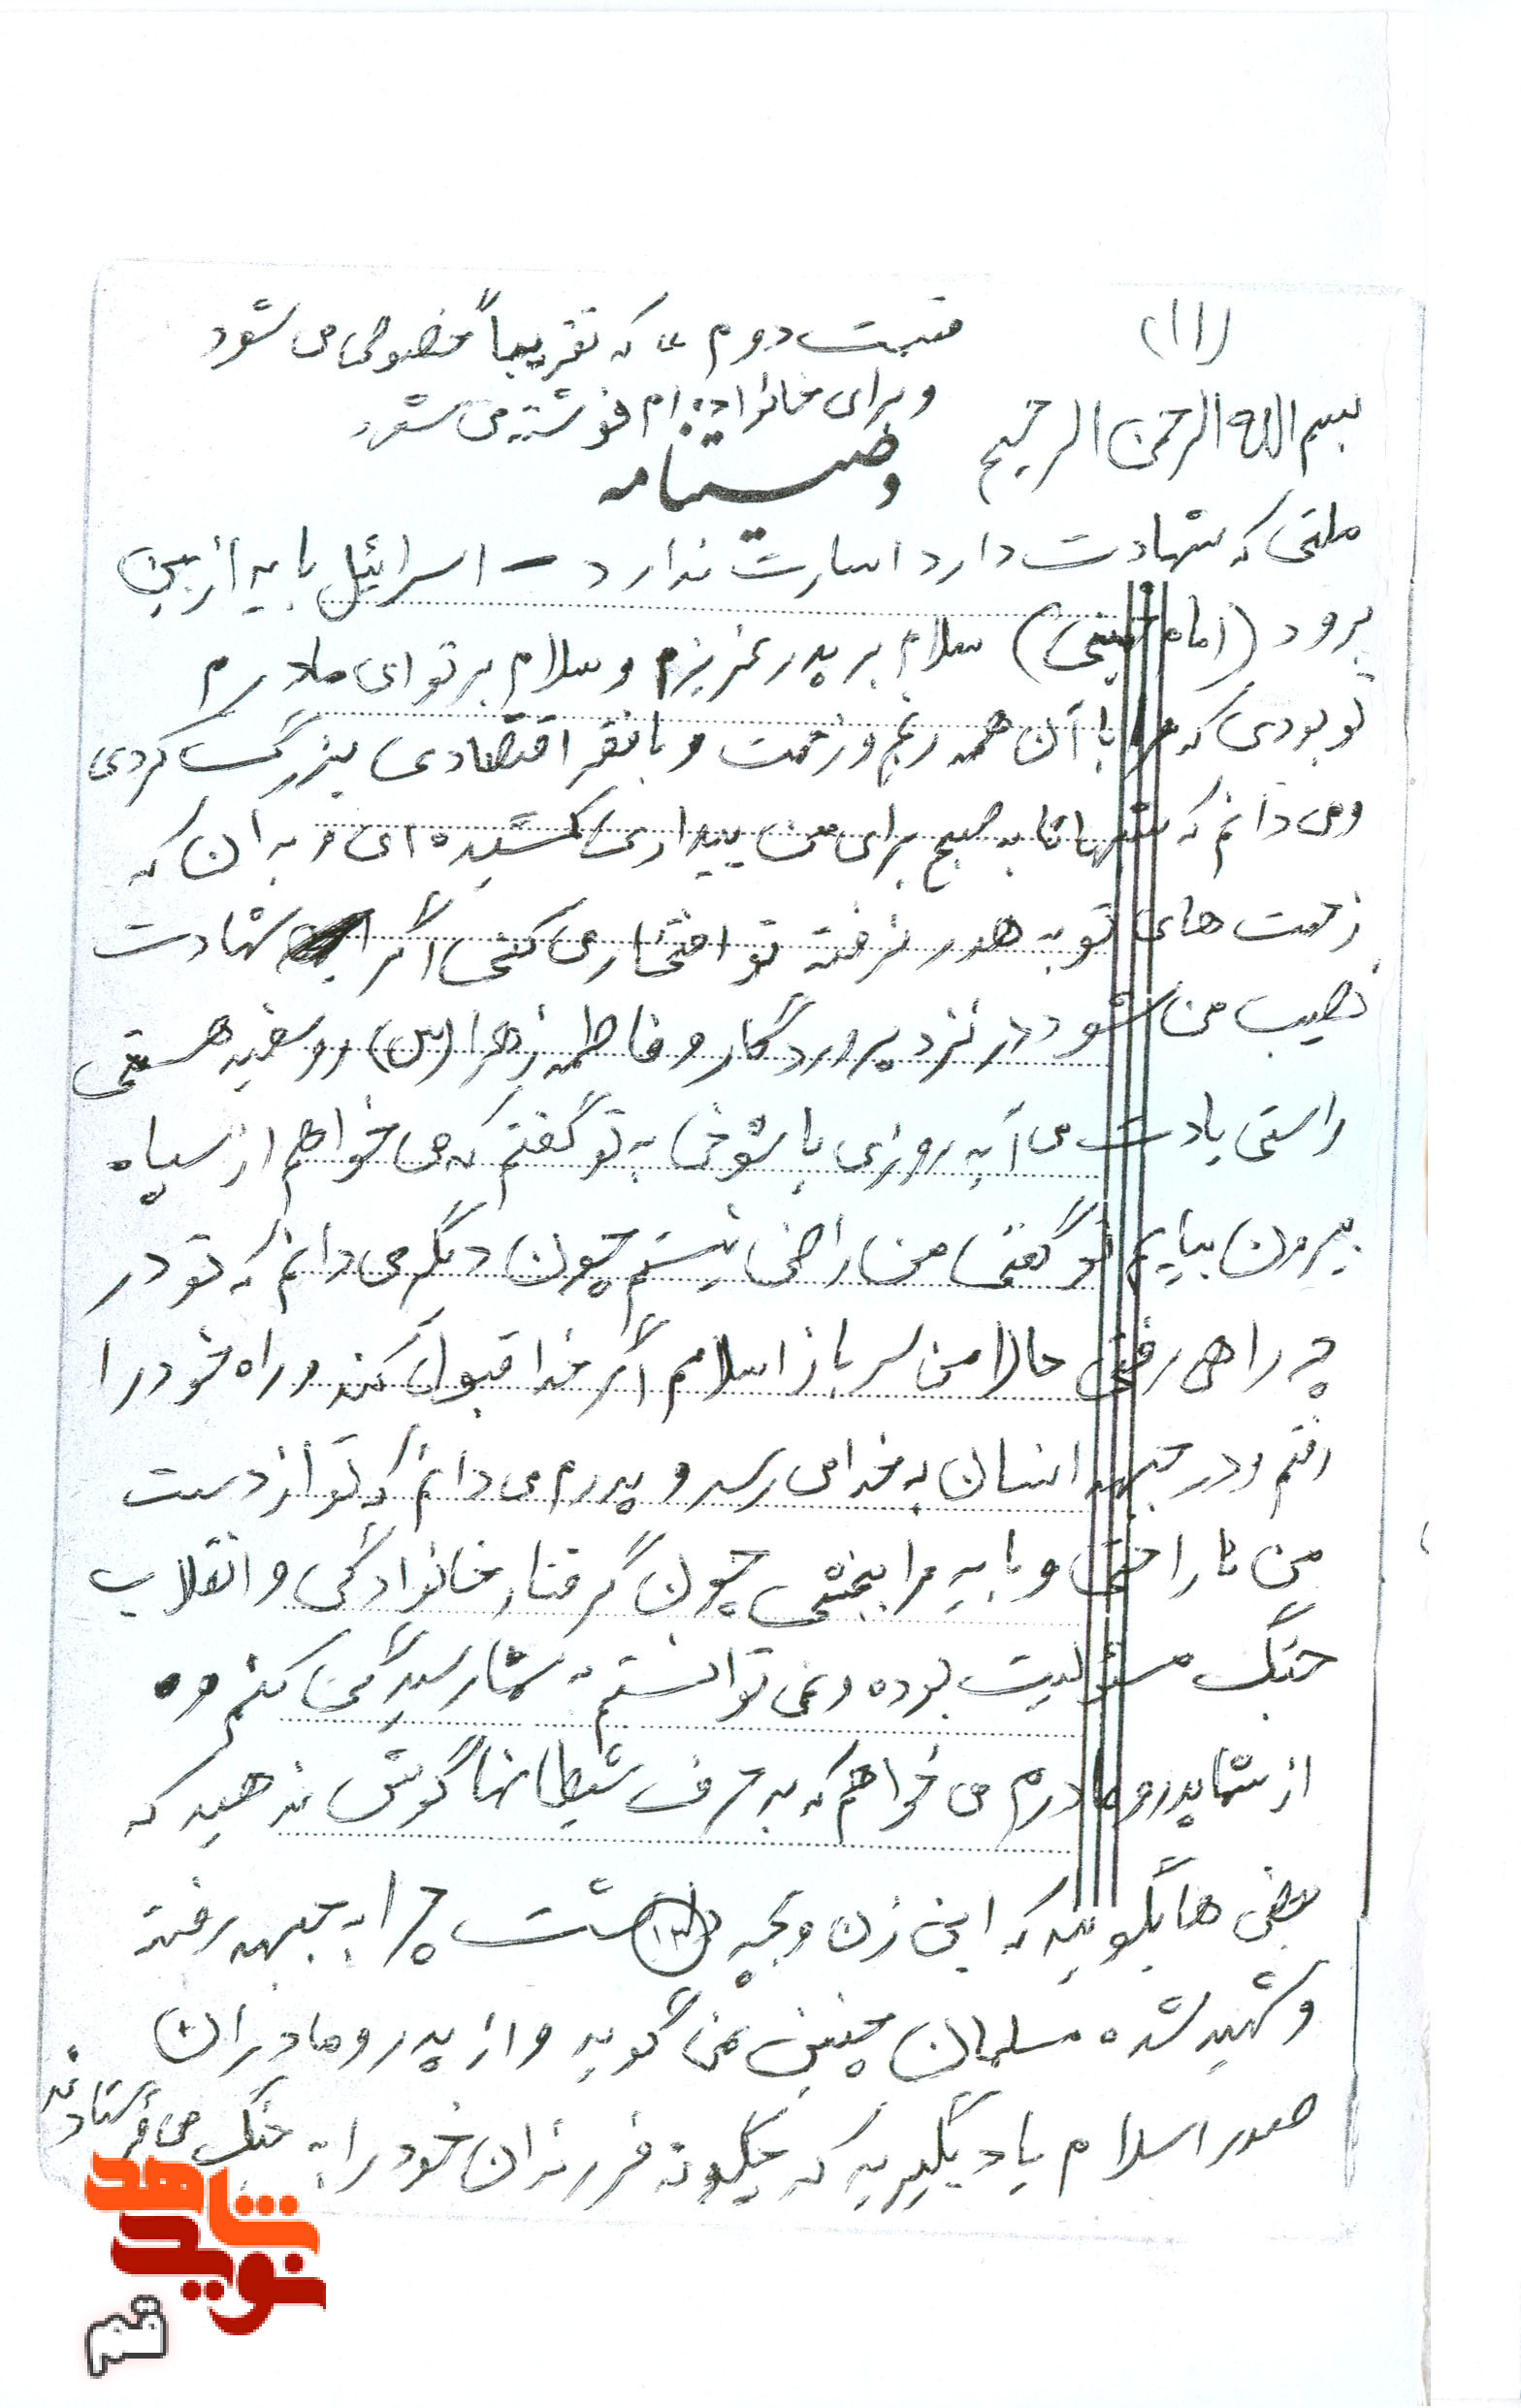 (۱۱)
قسمت دوم که تقریباً خصوصی می شود
و برای خانواده ام نوشته می شود
بسم الله الرحمن الرحیم
وصیتنامه
ملتی که شهادت دارد اسارت ندارد – اسرائیل باید از بین
برود (امام خمینی) سلام بر پدر عزیزم و سلام بر تو ای مادرم
تو بودی که مرا با آن همه رنج و زحمت و با فقر اقتصادی بزرگ کردی
و می دانم که شبها تا به صبح برای من بیداری کشیده ای و بدان که
زحمت های تو به هدر نرفته تو افتخار می کنی اگر شهادت
نصیب من شود در نزد پروردگار و فاطمه زهرا (س) رو سفید هستی
راستی یادت می آید روزی با شوخی به تو گفتم که می خواهم از سپاه
بیرون بیایم تو گفتی من راضی نیستم چون دیگر می دانم که تو در
چه راهی رفتی حالا من سرباز اسلام اگر خدا قبول کند و راه خود را
رفتم و در جبهه انسان به خدا می رسد و پدرم می دانم که تو از دست
من ناراحتی و باید مرا ببخشی چون گرفتار خانوادگی و انقلاب
جنگ مسئولیت بوده و نمی توانستم به شما رسیدگی کنم و
از شما پدر و مادرم می خواهم که به حرف شیطانها گوش ندهید که
بعضی ها بگویند که این زن و بچه داشت چرا به جبهه رفته
(۱۳)
و شهید شده مسلمان چنین نمی گوید و از پدر و مادران
صدر اسلام یاد بگیرید که چگونه فرزندان خود را به جنگ می فرستادند
نوید شاهد
قم